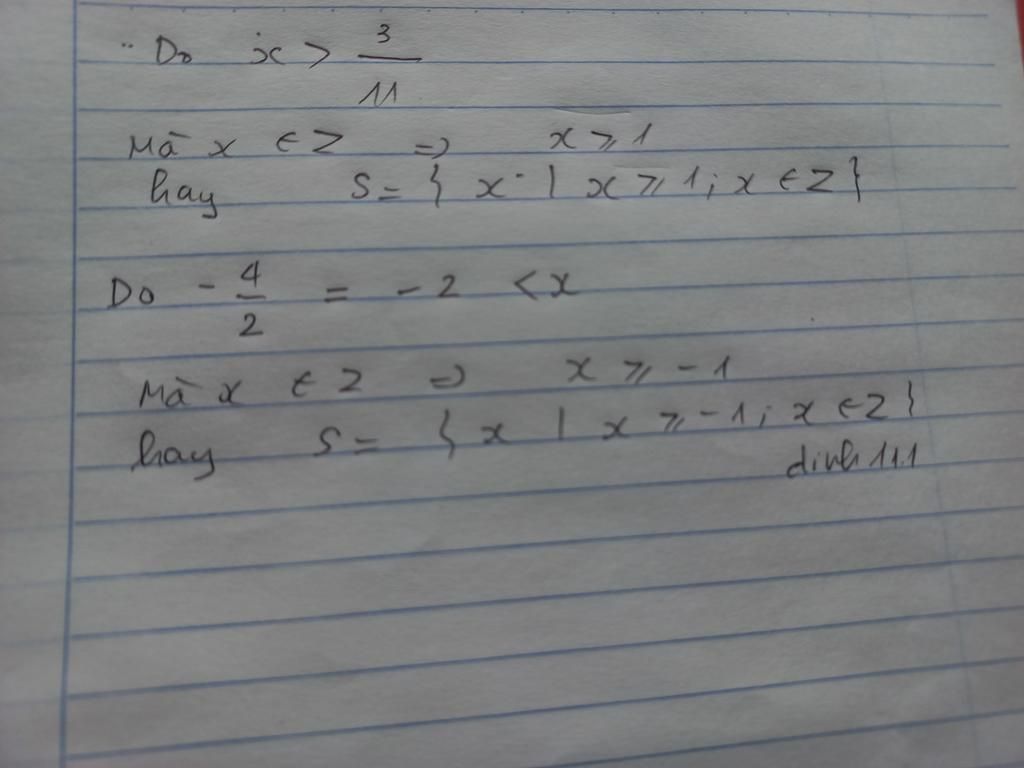 Do x > 3/11
Mà x ∈ Z => x ⩾ 1
hay S = { x | x ⩾ 1; x ∈ Z }
Do - 4/2 = - 2 < x
Mà x ∈ Z => x ⩾ - 1
hay S = { x | x ⩾ - 1; x ∈ Z }
dinh 111